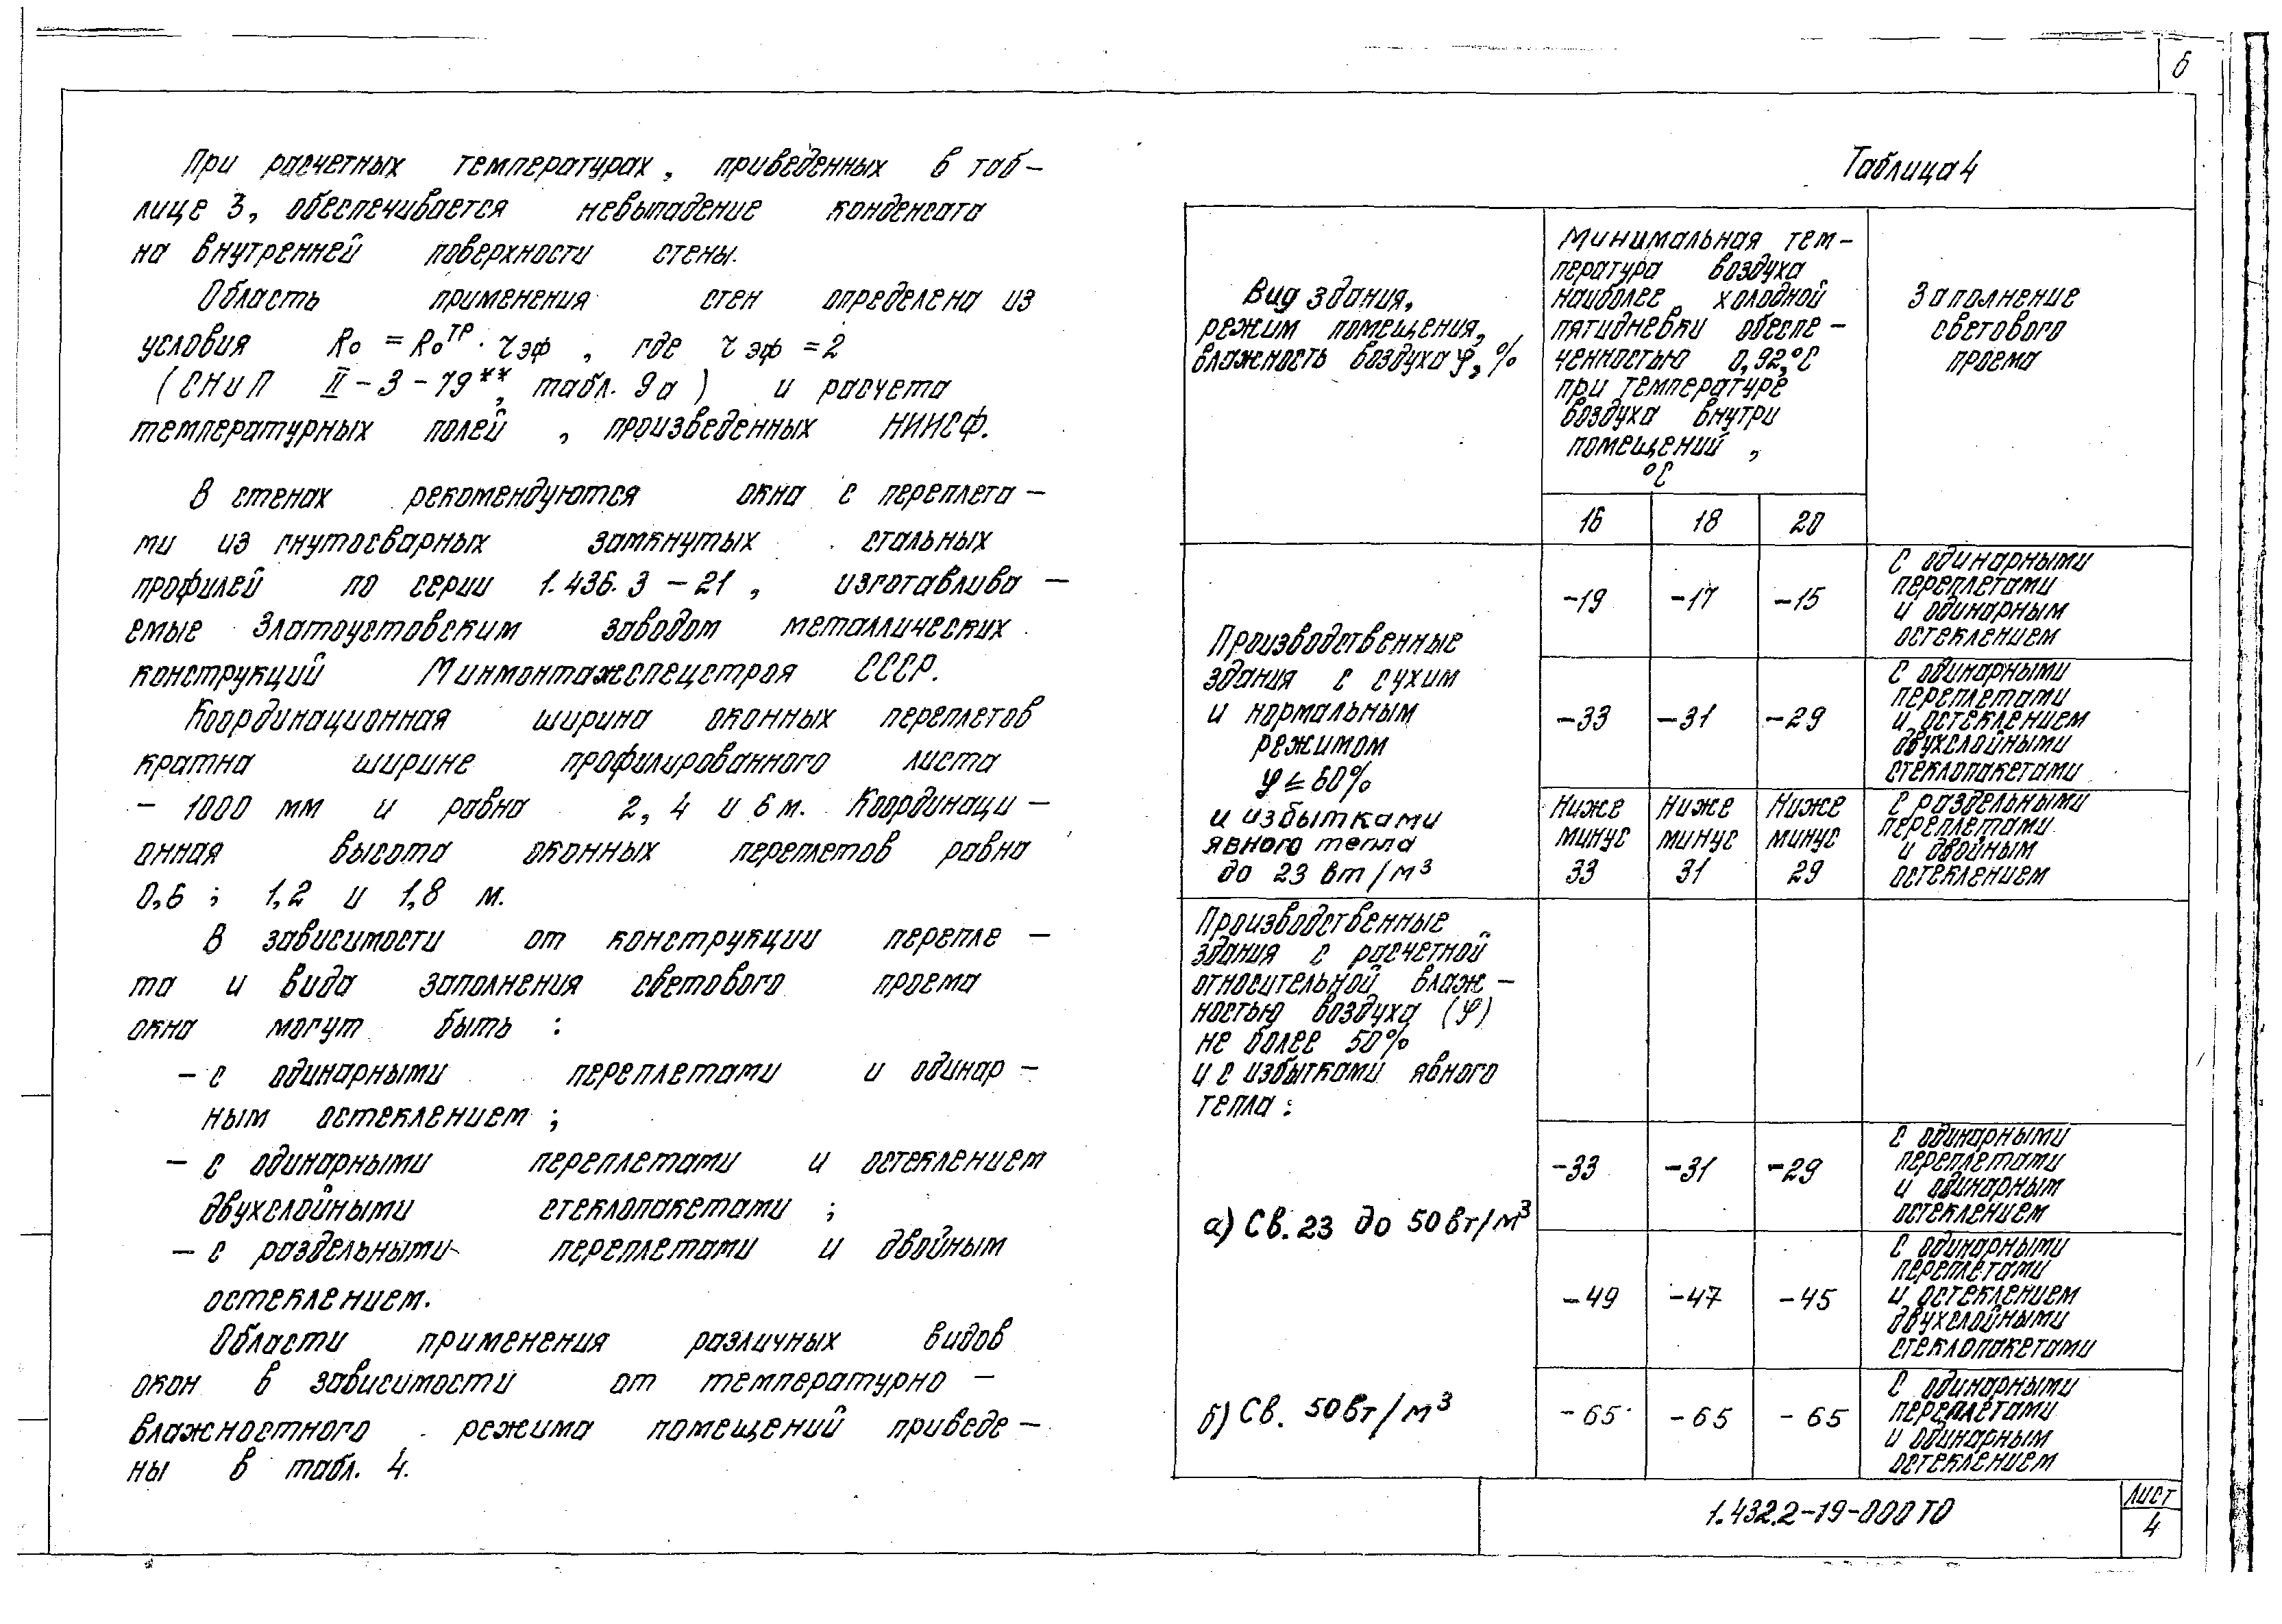 6
При расчетных температурах, приведенных в таб-
лице 3, обеспечивается невыпадение конденсата
на внутренней поверхности стены.
Область применения стен определена из
условия Rо = Rоᵀᴾ · τ эф , где τ эф = 2
(СНиП II-3-79**, табл. 9а) и расчета
температурных полей , произведенных НИИСФ.
В стенах рекомендуются окна с переплета-
ми из гнутосварных замкнутых стальных
профилей по серии 1.436.3-21 , изготавлива-
емые Златоустовским заводом металлических
конструкций Минмонтажспецстроя СССР.
Координационная ширина оконных переплетов
кратна ширине профилированного листа
- 1000 мм и равна 2, 4 и 6 м. Координаци-
онная высота оконных переплетов равна
0,6 ; 1,2 и 1,8 м.
В зависимости от конструкции перепле-
та и вида заполнения светового проема
окна могут быть :
- с одинарными переплетами и одинар-
ным остеклением ;
- с одинарными переплетами и остеклением
двухслойными стеклопакетами ;
- с раздельными переплетами и двойным
остеклением.
Области применения различных видов
окон в зависимости от температурно-
влажностного режима помещений приведе-
ны в табл. 4.
Таблица 4
Вид здания,
режим помещения,
влажность воздуха φ, %
Минимальная тем-
пература воздуха
наиболее холодной
пятидневки обеспе-
ченностью 0,92, °С
при температуре
воздуха внутри
помещений ,
°С
16 18 20
Заполнение
светового
проема
Производственные
здания с сухим
и нормальным
режимом
φ ≤ 60%
и избытками
явного тепла
до 23 вт/м³
-19 -17 -15
с одинарными
переплетами
и одинарным
остеклением
-33 -31 -29
с одинарными
переплетами
и остеклением
двухслойными
стеклопакетами
Ниже Ниже Ниже
минус минус минус
33 31 29
с раздельными
переплетами
и двойным
остеклением
Производственные
здания с расчетной
относительной влаж-
ностью воздуха (φ)
не более 50%
и с избытками явного
тепла :
а) Св. 23 до 50 вт/м³
-33 -31 -29
с одинарными
переплетами
и одинарным
остеклением
-49 -47 -45
с одинарными
переплетами
и остеклением
двухслойными
стеклопакетами
б) Св. 50 вт/м³
-65 -65 -65
с одинарными
переплетами
и одинарным
остеклением
1.432.2-19-000 ТО
Лист
4